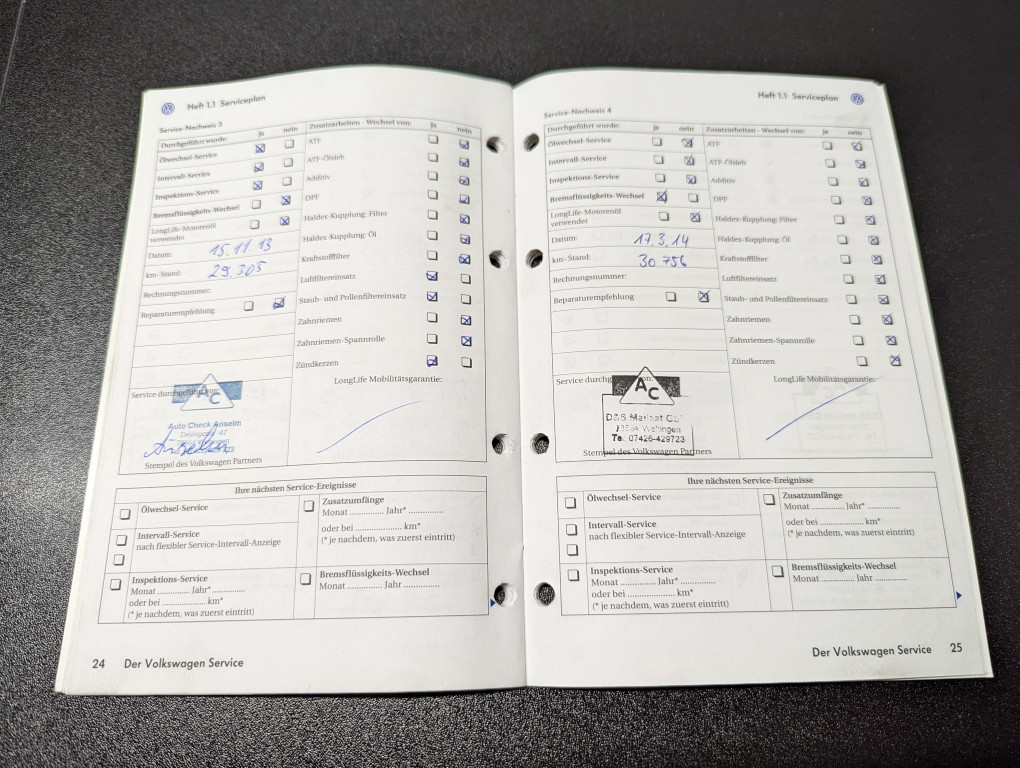 Heft 1.1 Serviceplan
Service-Nachweis 3
Durchgeführt wurde: ja nein
Ölwechsel-Service
Intervall-Service
Inspektions-Service
Bremsflüssigkeits-Wechsel
LongLife-Motorenöl
verwendet
Datum: 15.11.13
km-Stand: 29.305
Rechnungsnummer:
Reparaturempfehlung
Zusatzarbeiten - Wechsel von: ja nein
ATF
ATF-Ölsieb
Additiv
DPF
Haldex-Kupplung: Filter
Haldex-Kupplung: Öl
Kraftstofffilter
Luftfiltereinsatz
Staub- und Pollenfiltereinsatz
Zahnriemen
Zahnriemen-Spannrolle
Zündkerzen
Service durchgeführt von:
AC
Auto Check Anselm
Stempel des Volkswagen Partners
LongLife Mobilitätsgarantie:
Ihre nächsten Service-Ereignisse
Ölwechsel-Service
Intervall-Service
nach flexibler Service-Intervall-Anzeige
Inspektions-Service
Monat ............ Jahr* ............
oder bei ................ km*
(* je nachdem, was zuerst eintritt)
Zusatzumfänge
Monat ............ Jahr* ............
oder bei ................ km*
(* je nachdem, was zuerst eintritt)
Bremsflüssigkeits-Wechsel
Monat ............ Jahr ............
24 Der Volkswagen Service
Heft 1.1 Serviceplan
Service-Nachweis 4
Durchgeführt wurde: ja nein
Ölwechsel-Service
Intervall-Service
Inspektions-Service
Bremsflüssigkeits-Wechsel
LongLife-Motorenöl
verwendet
Datum: 17.3.14
km-Stand: 30 756
Rechnungsnummer:
Reparaturempfehlung
Zusatzarbeiten - Wechsel von: ja nein
ATF
ATF-Ölsieb
Additiv
DPF
Haldex-Kupplung: Filter
Haldex-Kupplung: Öl
Kraftstofffilter
Luftfiltereinsatz
Staub- und Pollenfiltereinsatz
Zahnriemen
Zahnriemen-Spannrolle
Zündkerzen
Service durchgeführt von:
AC
Tel.: 07426-429723
Stempel des Volkswagen Partners
LongLife Mobilitätsgarantie:
Ihre nächsten Service-Ereignisse
Ölwechsel-Service
Intervall-Service
nach flexibler Service-Intervall-Anzeige
Inspektions-Service
Monat ............ Jahr* ............
oder bei ................ km*
(* je nachdem, was zuerst eintritt)
Zusatzumfänge
Monat ............ Jahr* ............
oder bei ................ km*
(* je nachdem, was zuerst eintritt)
Bremsflüssigkeits-Wechsel
Monat ............ Jahr ............
Der Volkswagen Service 25